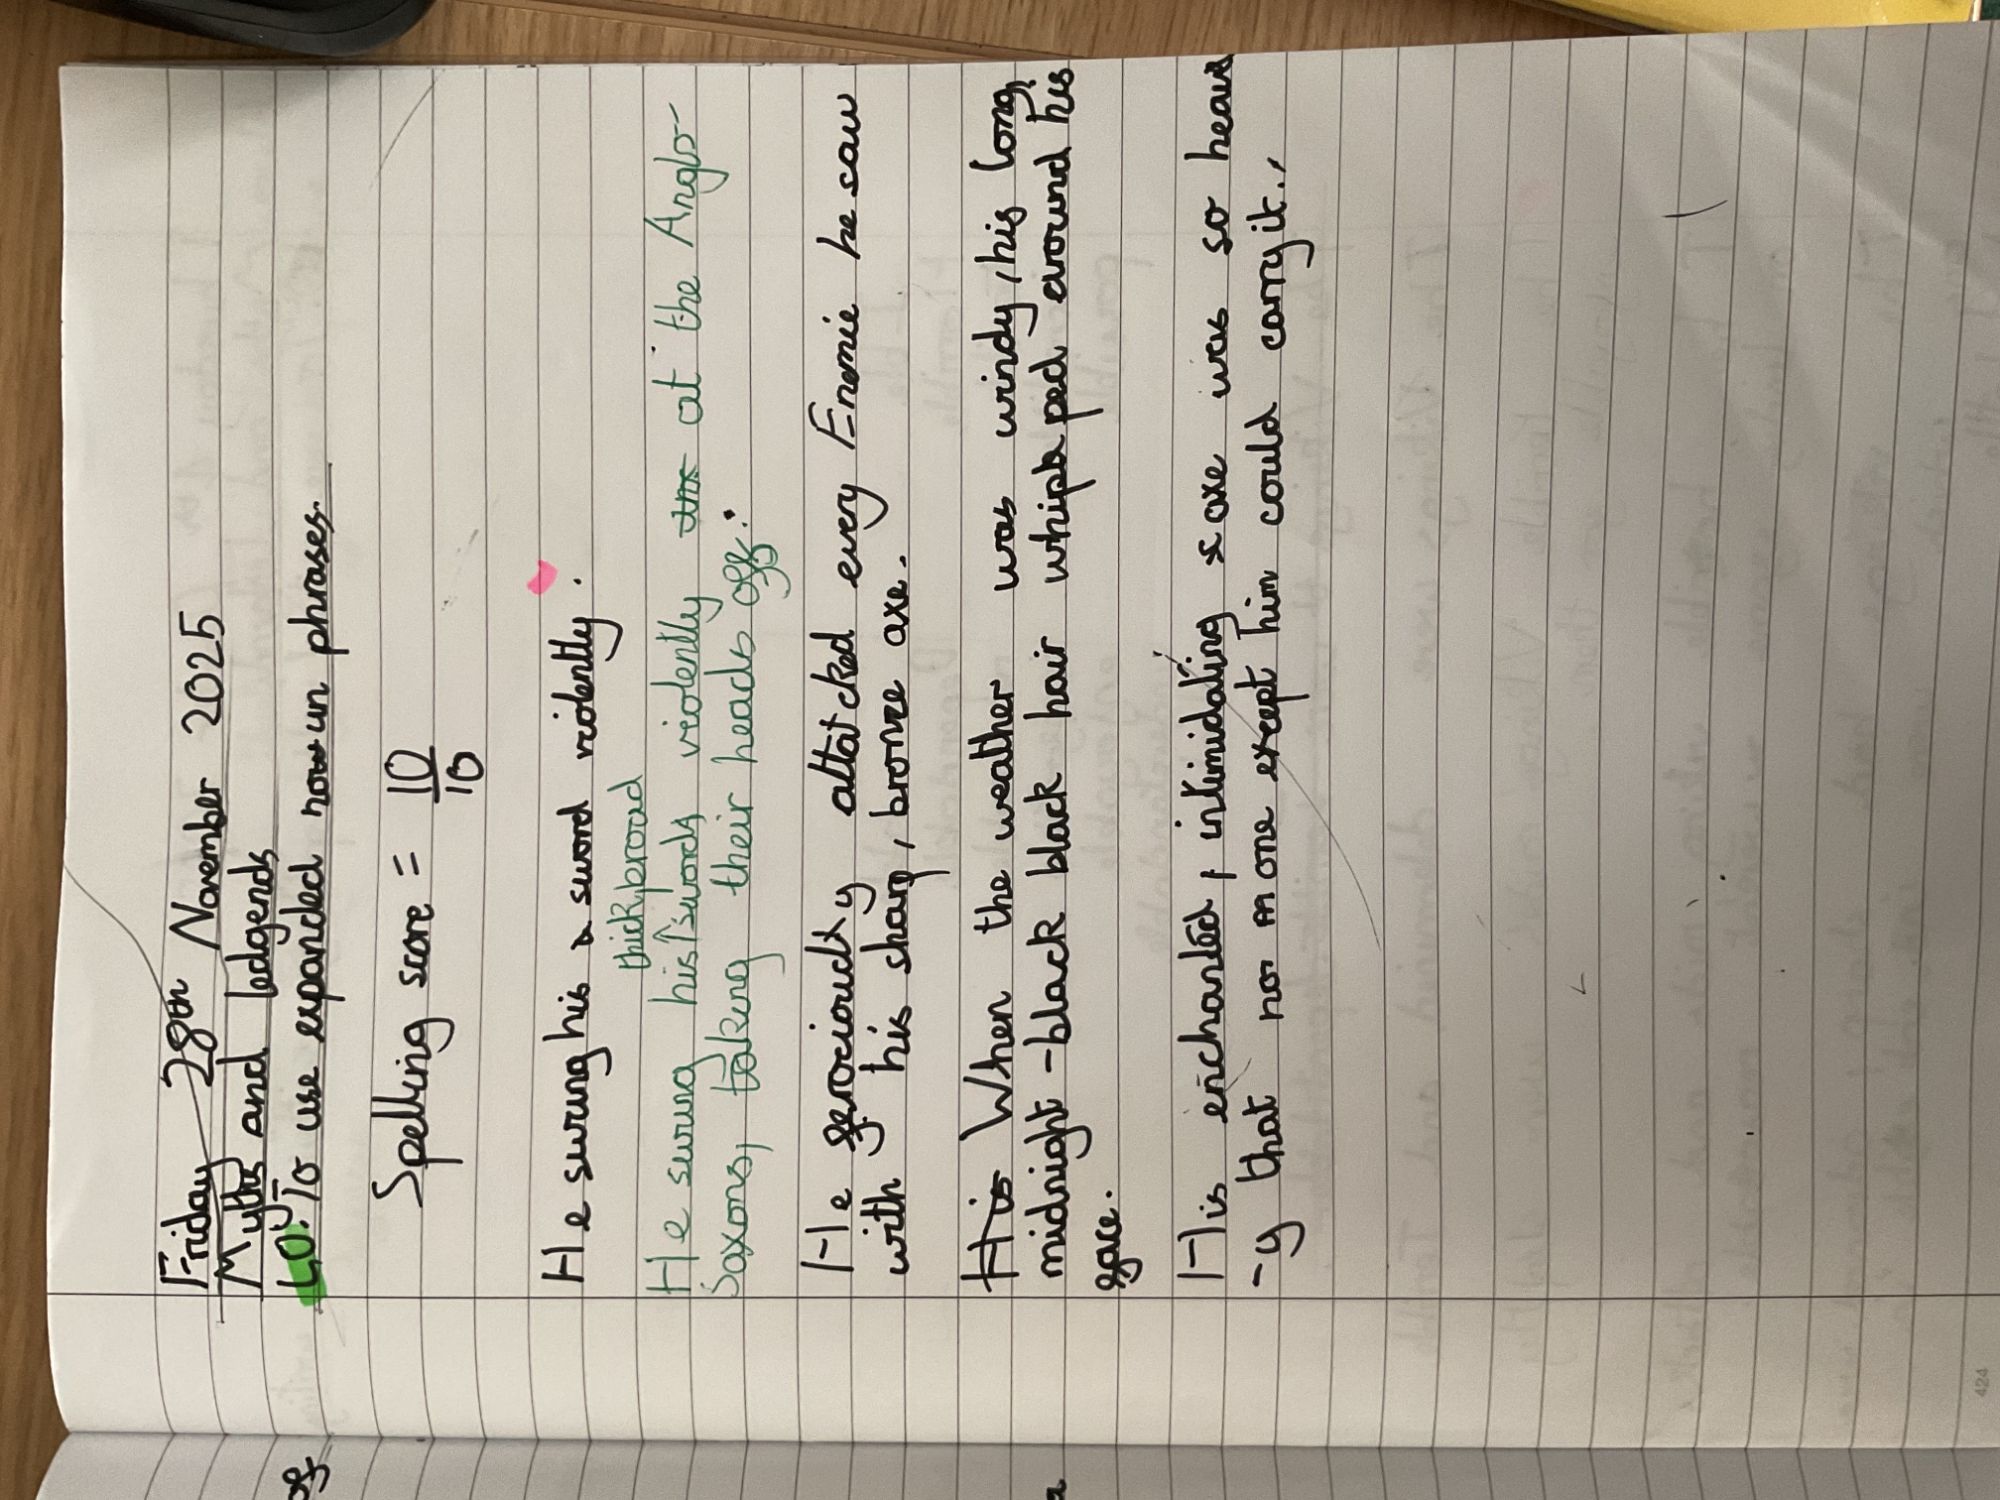 Friday 28th November 2025
Myths and ledgends
LO: To use expanded noun phrases.
Spelling score = 10/10
He swung his sword violently.
thick, broad
He swung his swords violently at the Anglo-
Saxons, taking their heads off.
He ferociously attatcked every Enemie he saw
with his sharp, bronze axe.
When the weather was windy, his long,
midnight-black black black hair whipped around his
face.
His enchanted, intimidating axe was so heav
-y that no one except him could carry it.
424
of
a